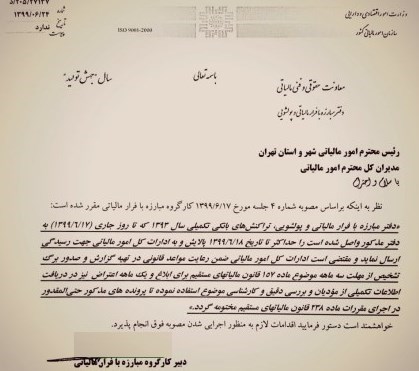 وزارت امور اقتصادی و دارایی
سازمان امور مالیاتی کشور
ISO 9001-2000
۱۳۹۹/۰۶/۲۴
ندارد
باسمه تعالی
سال "جهش تولید"
معاونت حقوقی و فنی مالیاتی
دفتر مبارزه با فرار مالیاتی و پولشویی
رئیس محترم امور مالیاتی شهر و استان تهران
مدیران کل محترم امور مالیاتی
با سلام و احترام
نظر به اینکه براساس مصوبه شماره ۴ جلسه مورخ ۱۳۹۹/۶/۱۷ کارگروه مبارزه با فرار مالیاتی مقرر شده است:
«دفتر مبارزه با فرار مالیاتی و پولشویی، تراکنش‌های بانکی تکمیلی سال ۱۳۹۳ که تا روز جاری (۱۳۹۹/۶/۱۷) به
دفتر مذکور واصل شده است را حداکثر تا تاریخ ۱۳۹۹/۶/۱۸ پالایش و به ادارات کل امور مالیاتی جهت رسیدگی
ارسال نماید و مقتضی است ادارات کل امور مالیاتی ضمن رعایت مواعد قانونی در تهیه گزارش و صدور برگ
تشخیص از مهلت سه ماهه موضوع ماده ۱۵۷ قانون مالیاتهای مستقیم برای ابلاغ و یک ماهه اعتراض نیز در دریافت
اطلاعات تکمیلی از مؤدیان و بررسی دقیق و کارشناسی موضوع استفاده نموده تا پرونده های مذکور حتی‌المقدور
در اجرای مقررات ماده ۲۳۸ قانون مالیاتهای مستقیم مختومه گردد.»
خواهشمند است دستور فرمایید اقدامات لازم به منظور اجرایی شدن مصوبه فوق انجام پذیرد.
دبیر کارگروه مبارزه با فرار مالیاتی